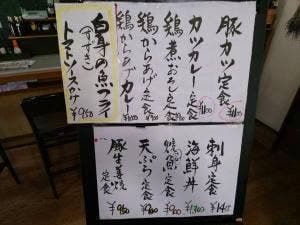 豚カツ定食
カツカレー定食
鶏煮おろし定食
鶏からあげ定食
鶏からあげカレー
白身の魚フライ
(すずき)
トマトソースかけ
¥950
刺身定食
海鮮丼
焼魚定食 ¥900
天ぷら定食 ¥900
豚生姜焼定食 ¥950